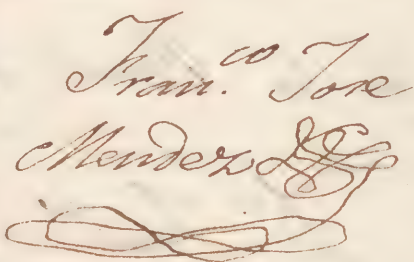 Fran.co Jose
Mendez